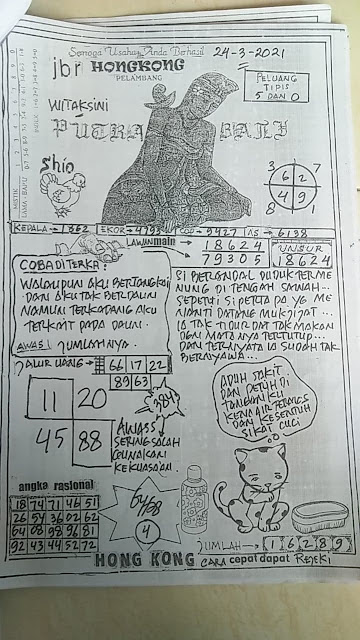 Semoga Usaha Anda Berhasil
24-3-2021
jbr HONGKONG
PELAMBANG
PELUANG
TIPIS
5 DAN 0
WITAKSINI
PUTRA BALI
Shio
3 7
6 2
4 9
8 1
KEPALA → 1362 EKOR → 4793 COP → 9427 AS → 6138
LAWANmain → 18624
79305
UNSUR
18624
COBA DITERKA:
WALAUPUN AKU BERTANGKAI
DAN AKU TAK BERDAUN
NAMUN TERKADANG AKU
TERKAIT PADA DAUN.
AWAS! JUMLAHNYA.
SI BERANDAL DUDUK TERME
NUNG DI TENGAH SAWAH...
SEPERTI SIPERTAPA YG ME
NANTI DATANG MUKJIZAT...
IA TAK TIDUR DAT TAK MAKAN
DGN MATANYA TERTUTUP...
DAN TERNYATA IA SUDAH TAK
BERNYAWA...
JALUR UANG → 66 17 22
89 63
11 20
45 88
3849
AWASS
SERING SALAH
GUNAKAN
KEKUASAAN.
ADUH SAKIT
DAN PERIH DI
TANGANKU
KENA AIR TERMOS
DAN KESENTUH
SIKAT CUCI
angka rasional
18 74 71 46 51
26 54 36 02 62
64 08 98 96 81
92 43 44 52 72
64/68
4
JUMLAH → 1 6 2 8 9
HONG KONG CARA cepat dapat REJEKI